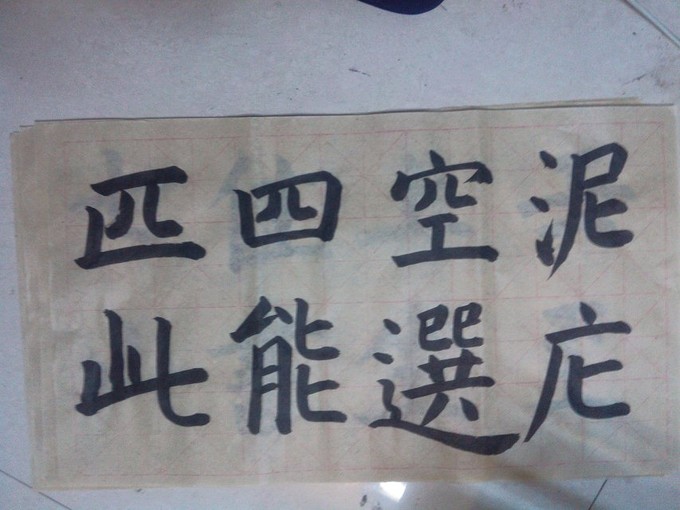 泥庀
空選
四能
匹此